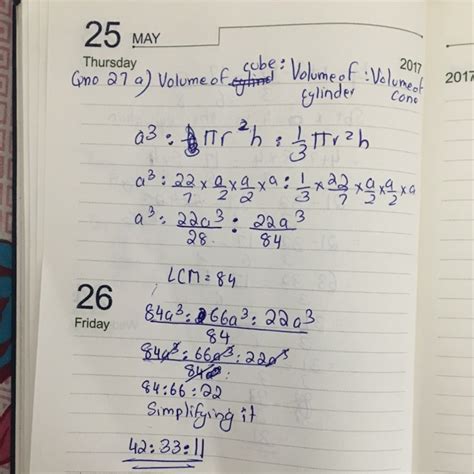 25 MAY
Thursday 2017
2017
(qno 27 a) Volume of cube : Volume of cylinder : Volume of cone
a³ : πr²h : 1/3 πr²h
a³ : 22/7 × a/2 × a/2 × a : 1/3 × 22/7 × a/2 × a/2 × a
a³ : 22a³/28 : 22a³/84
LCM = 84
26
Friday
84a³ : 66a³ : 22a³ / 84
84a³ : 66a³ : 22a³ / 84a³
84 : 66 : 22
Simplifying it
42 : 33 : 11